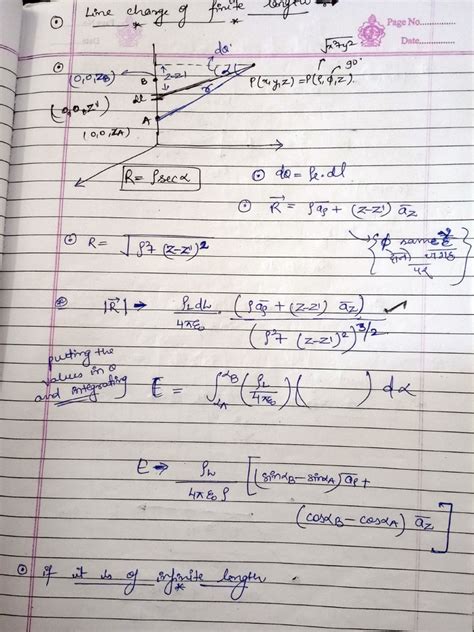 Line charge of finite length →
Page No..............
Date................
dα'
√x²+y²
90°
(0,0,ZB) B z-z' α
P(x,y,z) = P(ρ, φ, z)
(0,0,z') dl r
A
(0,0,ZA)
R = ρ sec α
dQ = ρL . dl
R = ρ āρ + (z-z') āz
{ φ same
R = √ρ²+ (z-z')²
|R| → ρL dL / 4πε0 . (ρ āρ + (z-z') āz) / (ρ²+ (z-z')²)^3/2 ✓
putting the
values in
and integrating
E = ∫αA^αB (ρL / 4πε0) ( ) dα
E → ρL / 4πε0 ρ [(sinαB - sinαA) āρ +
(cosαB - cosαA) āz]
if it is of infinite length